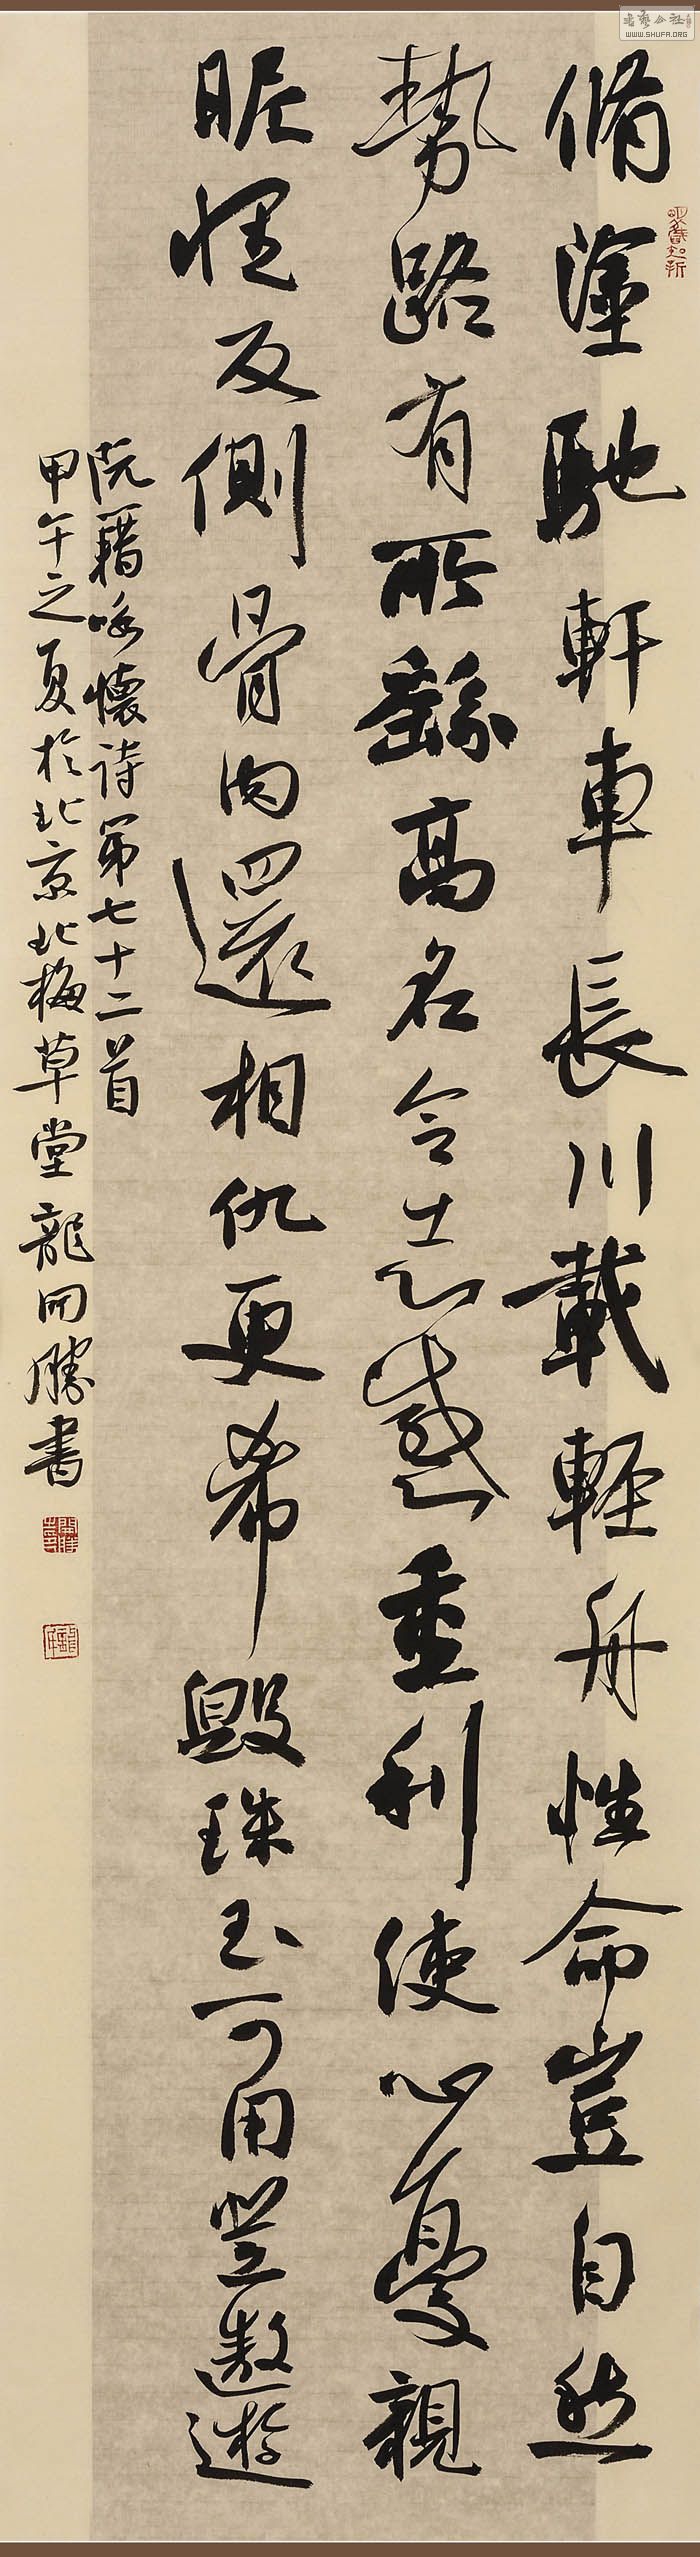 脩塗馳軒車長川載輕舟性命豈自然
勢路有所繇高名令志惑重利使心憂親
昵懷反側骨肉還相仇更希毀珠玉可用登遨遊
阮籍咏懷詩第七十二首
甲午之夏於北京北梅草堂龍開勝書
WWW.SHUFA.ORG